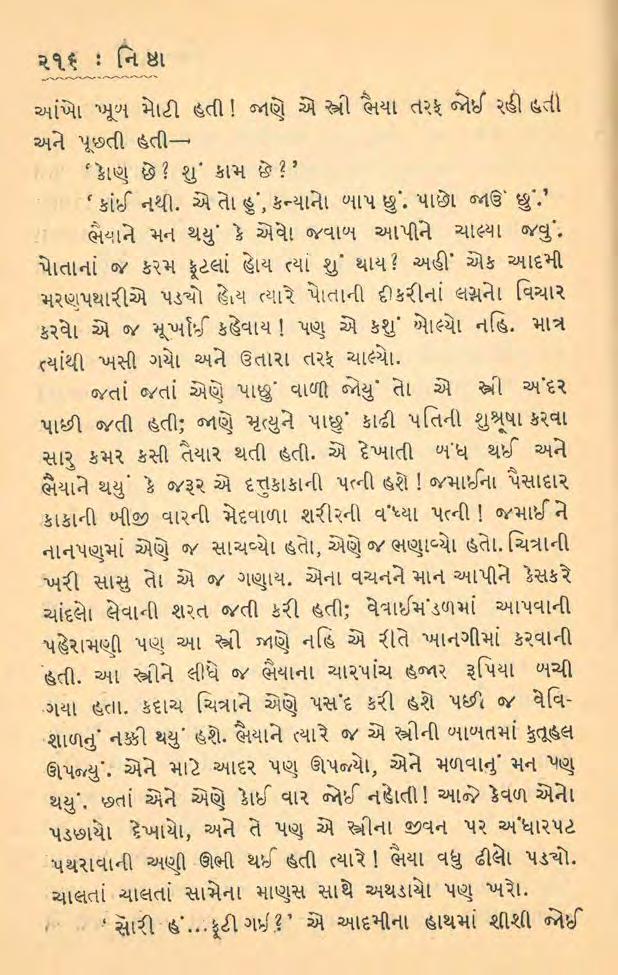 ૨૧૬ : નિષ્ઠા
આંખો ખૂબ મોટી હતી! જાણે એ સ્ત્રી ભૈયા તરફ જોઈ રહી હતી
અને પૂછતી હતી—
‘કોણ છે? શું કામ છે?’
‘કાંઈ નથી. એ તો હું, કન્યાનો બાપ છું. પાછો જાઉં છું.’
ભૈયાને મન થયું કે એવો જવાબ આપીને ચાલ્યા જવું.
પોતાનાં જ કરમ ફૂટલાં હોય ત્યાં શું થાય? અહીં એક આદમી
મરણપથારીએ પડ્યો હોય ત્યારે પોતાની દીકરીનાં લગ્નનો વિચાર
કરવો એ જ મૂર્ખાઈ કહેવાય! પણ એ કશું બોલ્યો નહિ. માત્ર
ત્યાંથી ખસી ગયો અને ઉતારા તરફ ચાલ્યો.
જતાં જતાં એણે પાછું વાળી જોયું તો એ સ્ત્રી અંદર
પાછી જતી હતી; જાણે મૃત્યુને પાછું કાઢી પતિની શુશ્રૂષા કરવા
સારુ કમર કસી તૈયાર થતી હતી. એ દેખાતી બંધ થઈ અને
ભૈયાને થયું કે જરૂર એ દત્તુકાકાની પત્ની હશે! જમાઈના પૈસાદાર
કાકાની બીજી વારની મેદવાળા શરીરની વંધ્યા પત્ની! જમાઈ ને
નાનપણમાં એણે જ સાચવ્યો હતો, એણે જ ભણાવ્યો હતો. ચિત્રાની
ખરી સાસુ તો એ જ ગણાય. એના વચનને માન આપીને કેસકરે
ચાંદલો લેવાની શરત જતી કરી હતી; વેવાઈમંડળમાં આપવાની
પહેરામણી પણ આ સ્ત્રી જાણે નહિ એ રીતે ખાનગીમાં કરવાની
હતી. આ સ્ત્રીને લીધે જ ભૈયાના ચારપાંચ હજાર રૂપિયા બચી
ગયા હતા. કદાચ ચિત્રાને એણે પસંદ કરી હશે પછી જ વેવિ-
શાળનું નક્કી થયું હશે. ભૈયાને ત્યારે જ એ સ્ત્રીની બાબતમાં કુતૂહલ
ઊપજ્યું. એને માટે આદર પણ ઊપજ્યો, એને મળવાનું મન પણ
થયું. છતાં એને એણે કોઈ વાર જોઈ નહોતી! આજે કેવળ એનો
પડછાયો દેખાયો, અને તે પણ એ સ્ત્રીના જીવન પર અંધારપટ
પથરાવાની અણી ઊભી થઈ હતી ત્યારે! ભૈયા વધુ ઢીલો પડ્યો.
ચાલતાં ચાલતાં સામેના માણસ સાથે અથડાયો પણ ખરો.
‘સોરી હં...ફૂટી ગઈ?’ એ આદમીના હાથમાં શીશી જોઈ